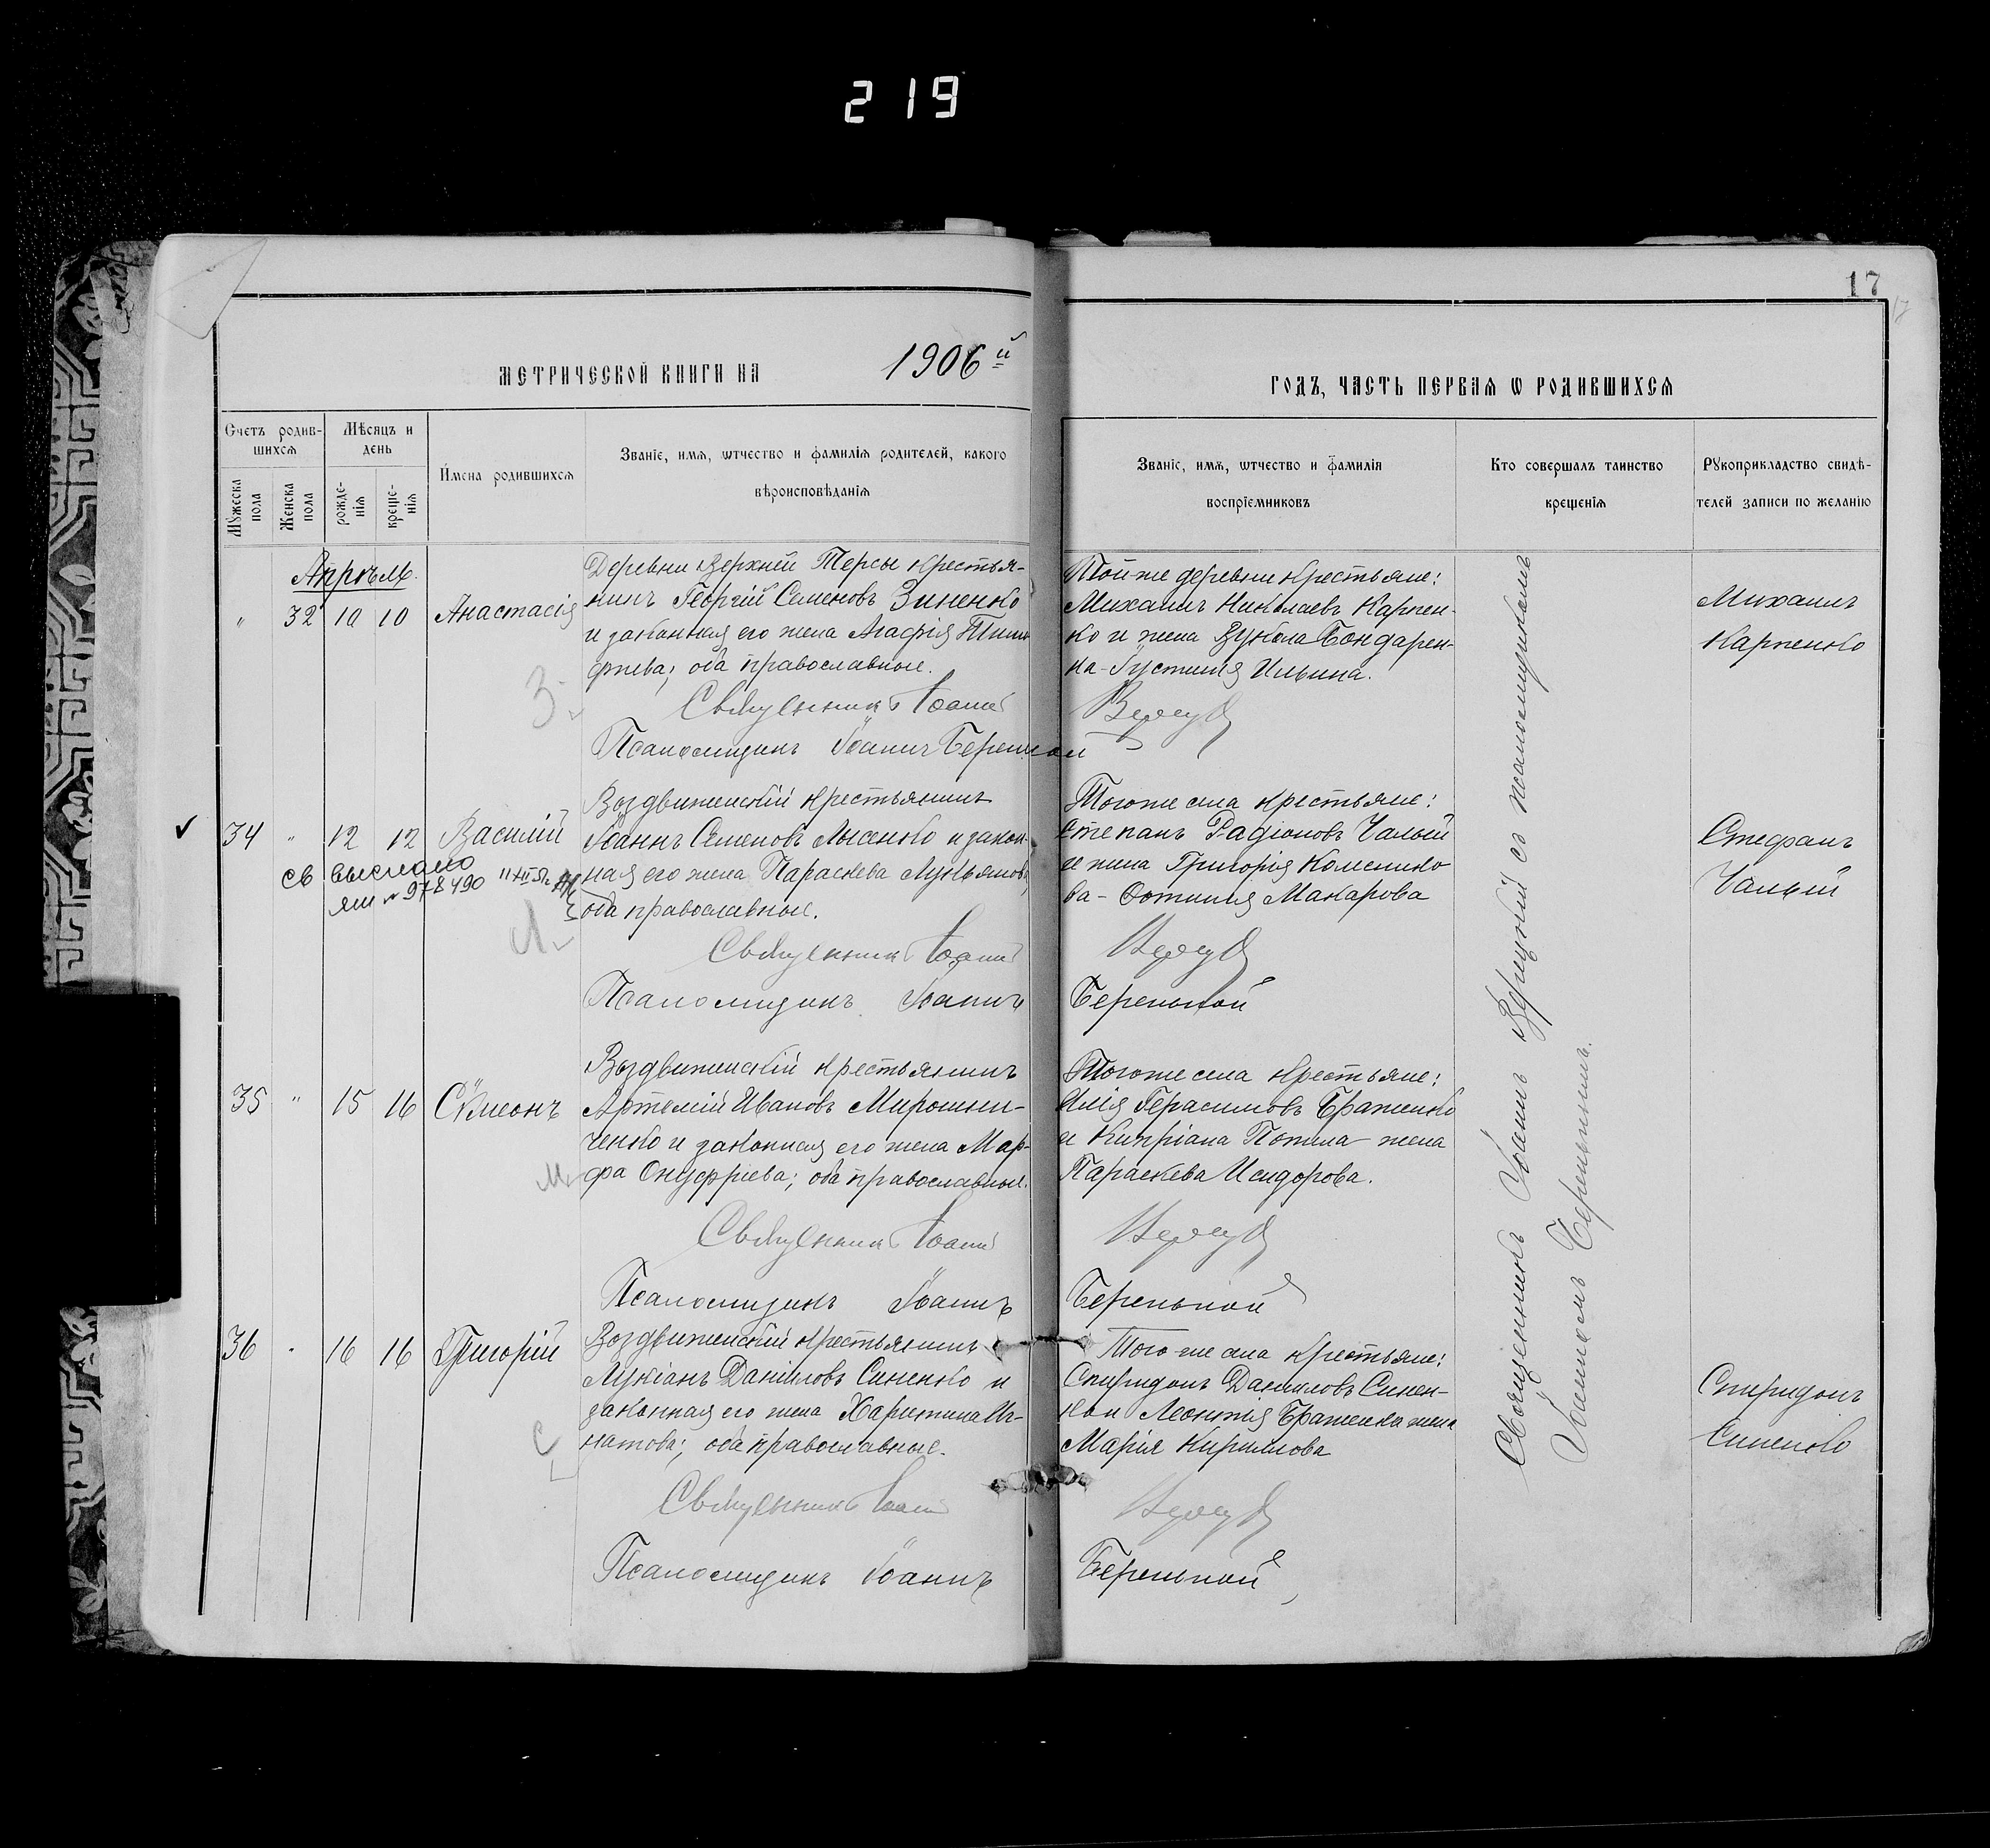 219
17
МЕТРИЧЕСКОЙ КНИГИ НА 1906й
ГОДЪ, ЧАСТЬ ПЕРВАЯ Ѡ РОДИВШИХСѦ
Счетъ родив-
шихсѧ
Мѣсяцъ и
день
Мꙋжеска
пола
Женска
пола
рожде-
нія
креще-
нія
Имена родившихсѧ
Званіе, имѧ, ѡтчество и фамилія родителей, какого
вѣроисповѣданія
Званіе, имѧ, ѡтчество и фамилія
воспріемниковъ
Кто совершалъ таинство
крещенія
Рꙋкоприкладство свидѣ-
телей записи по желанію
Апрѣль.
" 32 10 10 Анастасія
Деревни Верхней Терсы крестья-
нинъ Георгій Семеновъ Зиненко
и законная его жена Агафія Тимо
фиева; оба православные.
Священникъ Іоаннъ
Псаломщикъ Іоаннъ Бережной
Той-же деревни крестьяне:
Михаилъ Николаевъ Карпен-
ко и жена Вукола Бондарен-
ка - Густинія Ильина.
Михаилъ
Карпенко
34 " 12 12 Василій
св выслано
ЯШ № 978490
Воздвиженскій крестьянинъ
Іоаннъ Семеновъ Лысенко и закон-
ная его жена Параскева Лукьянова,
оба православные.
Священникъ Іоаннъ
Псаломщикъ Іоаннъ Бережной
Л
Того же села крестьяне:
Степанъ Радіоновъ Чалый
и жена Григорія Колесніко
ва - Фотинія Макарова
Стефанъ
Чалый
35 " 15 16 Сѵмеонъ
Воздвиженскій крестьянинъ
Артемій Ивановъ Мирошни-
ченко и законная его жена Мар-
фа Онуфріева; оба православные.
Священникъ Іоаннъ
Псаломщикъ Іоаннъ Бережной
М
Того же села крестьяне:
Илія Герасимовъ Браженко
и Кипріана Потила жена
Параскева Исидорова.
36 " 16 16 Григорій
Воздвиженскій крестьянинъ
Лукіанъ Даніиловъ Синенко и
законная его жена Харитина Иг-
натова; оба православные.
Священникъ Іоаннъ
Псаломщикъ Іоаннъ Бережной
С
Того-же села крестьяне:
Спиридонъ Данииловъ Синен-
ко и Леонтія Браженка жена
Марія Кириллова
Спиридонъ
Синенко
Священникъ Іоаннъ Верецкій съ псаломщикомъ
Іоанномъ Бережнымъ.